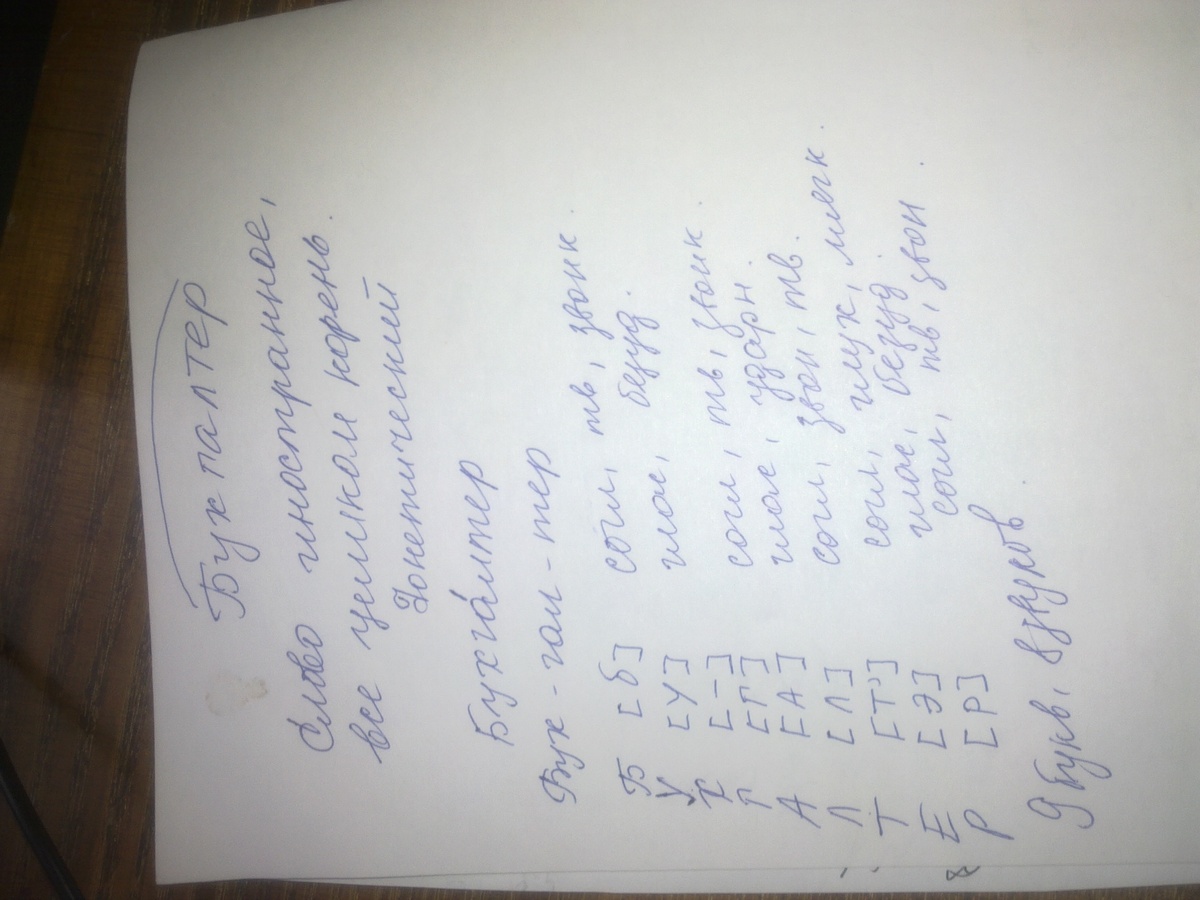 Бухгалтер
Слово иностранное,
все целиком корень.
Фонетический
Бухга́лтер
Бух-гал-тер
Б [б] согл, тв, звонк.
У [У] глас, безуд.
Х [–]
Г [Г] согл, тв, звонк.
А [А] глас, ударн.
Л [Л] согл, звон, тв.
Т [Т'] согл, глух, мягк.
Е [Э] глас, безуд.
Р [Р] согл, тв, звон.
9 букв, 8 звуков